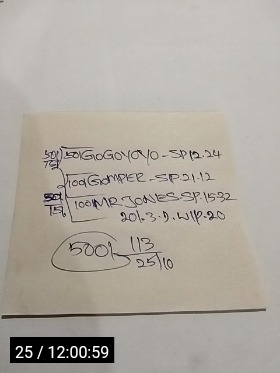 50/GOGOYOYO-SP12.24
100/GOMPER-SP.21.12
100/MR JONES-SP.15.32
20/.3.2.W/P.20
500/- 113
25/10
25 / 12:00:59